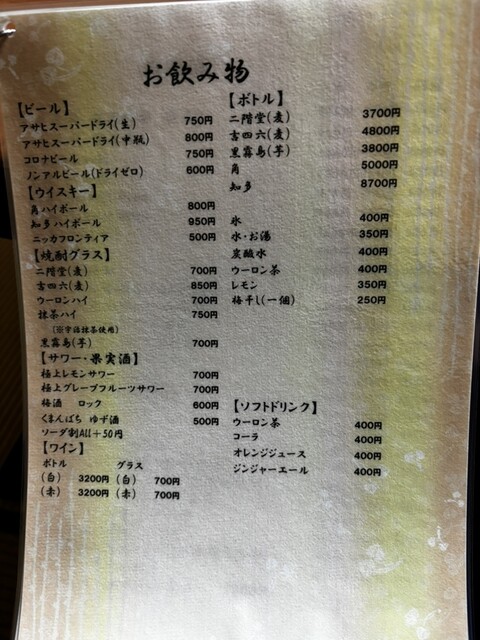 お飲み物
【ビール】
アサヒスーパードライ(生) 750円
アサヒスーパードライ(中瓶) 800円
コロナビール 750円
ノンアルビール(ドライゼロ) 600円
【ウイスキー】
角ハイボール 800円
知多ハイボール 950円
ニッカフロンティア 500円
【焼酎グラス】
二階堂(麦) 700円
吉四六(麦) 850円
ウーロンハイ 700円
抹茶ハイ 750円
(※宇治抹茶使用)
黒霧島(芋) 700円
【サワー・果実酒】
極上レモンサワー 700円
極上グレープフルーツサワー 700円
梅酒 ロック 600円
くまんばち ゆず酒 500円
ソーダ割All+50円
【ワイン】
ボトル グラス
(白) 3200円 (白) 700円
(赤) 3200円 (赤) 700円
【ボトル】
二階堂(麦) 3700円
吉四六(麦) 4800円
黒霧島(芋) 3800円
角 5000円
知多 8700円
氷 400円
水・お湯 350円
炭酸水 400円
ウーロン茶 400円
レモン 350円
梅干し(一個) 250円
【ソフトドリンク】
ウーロン茶 400円
コーラ 400円
オレンジジュース 400円
ジンジャーエール 400円